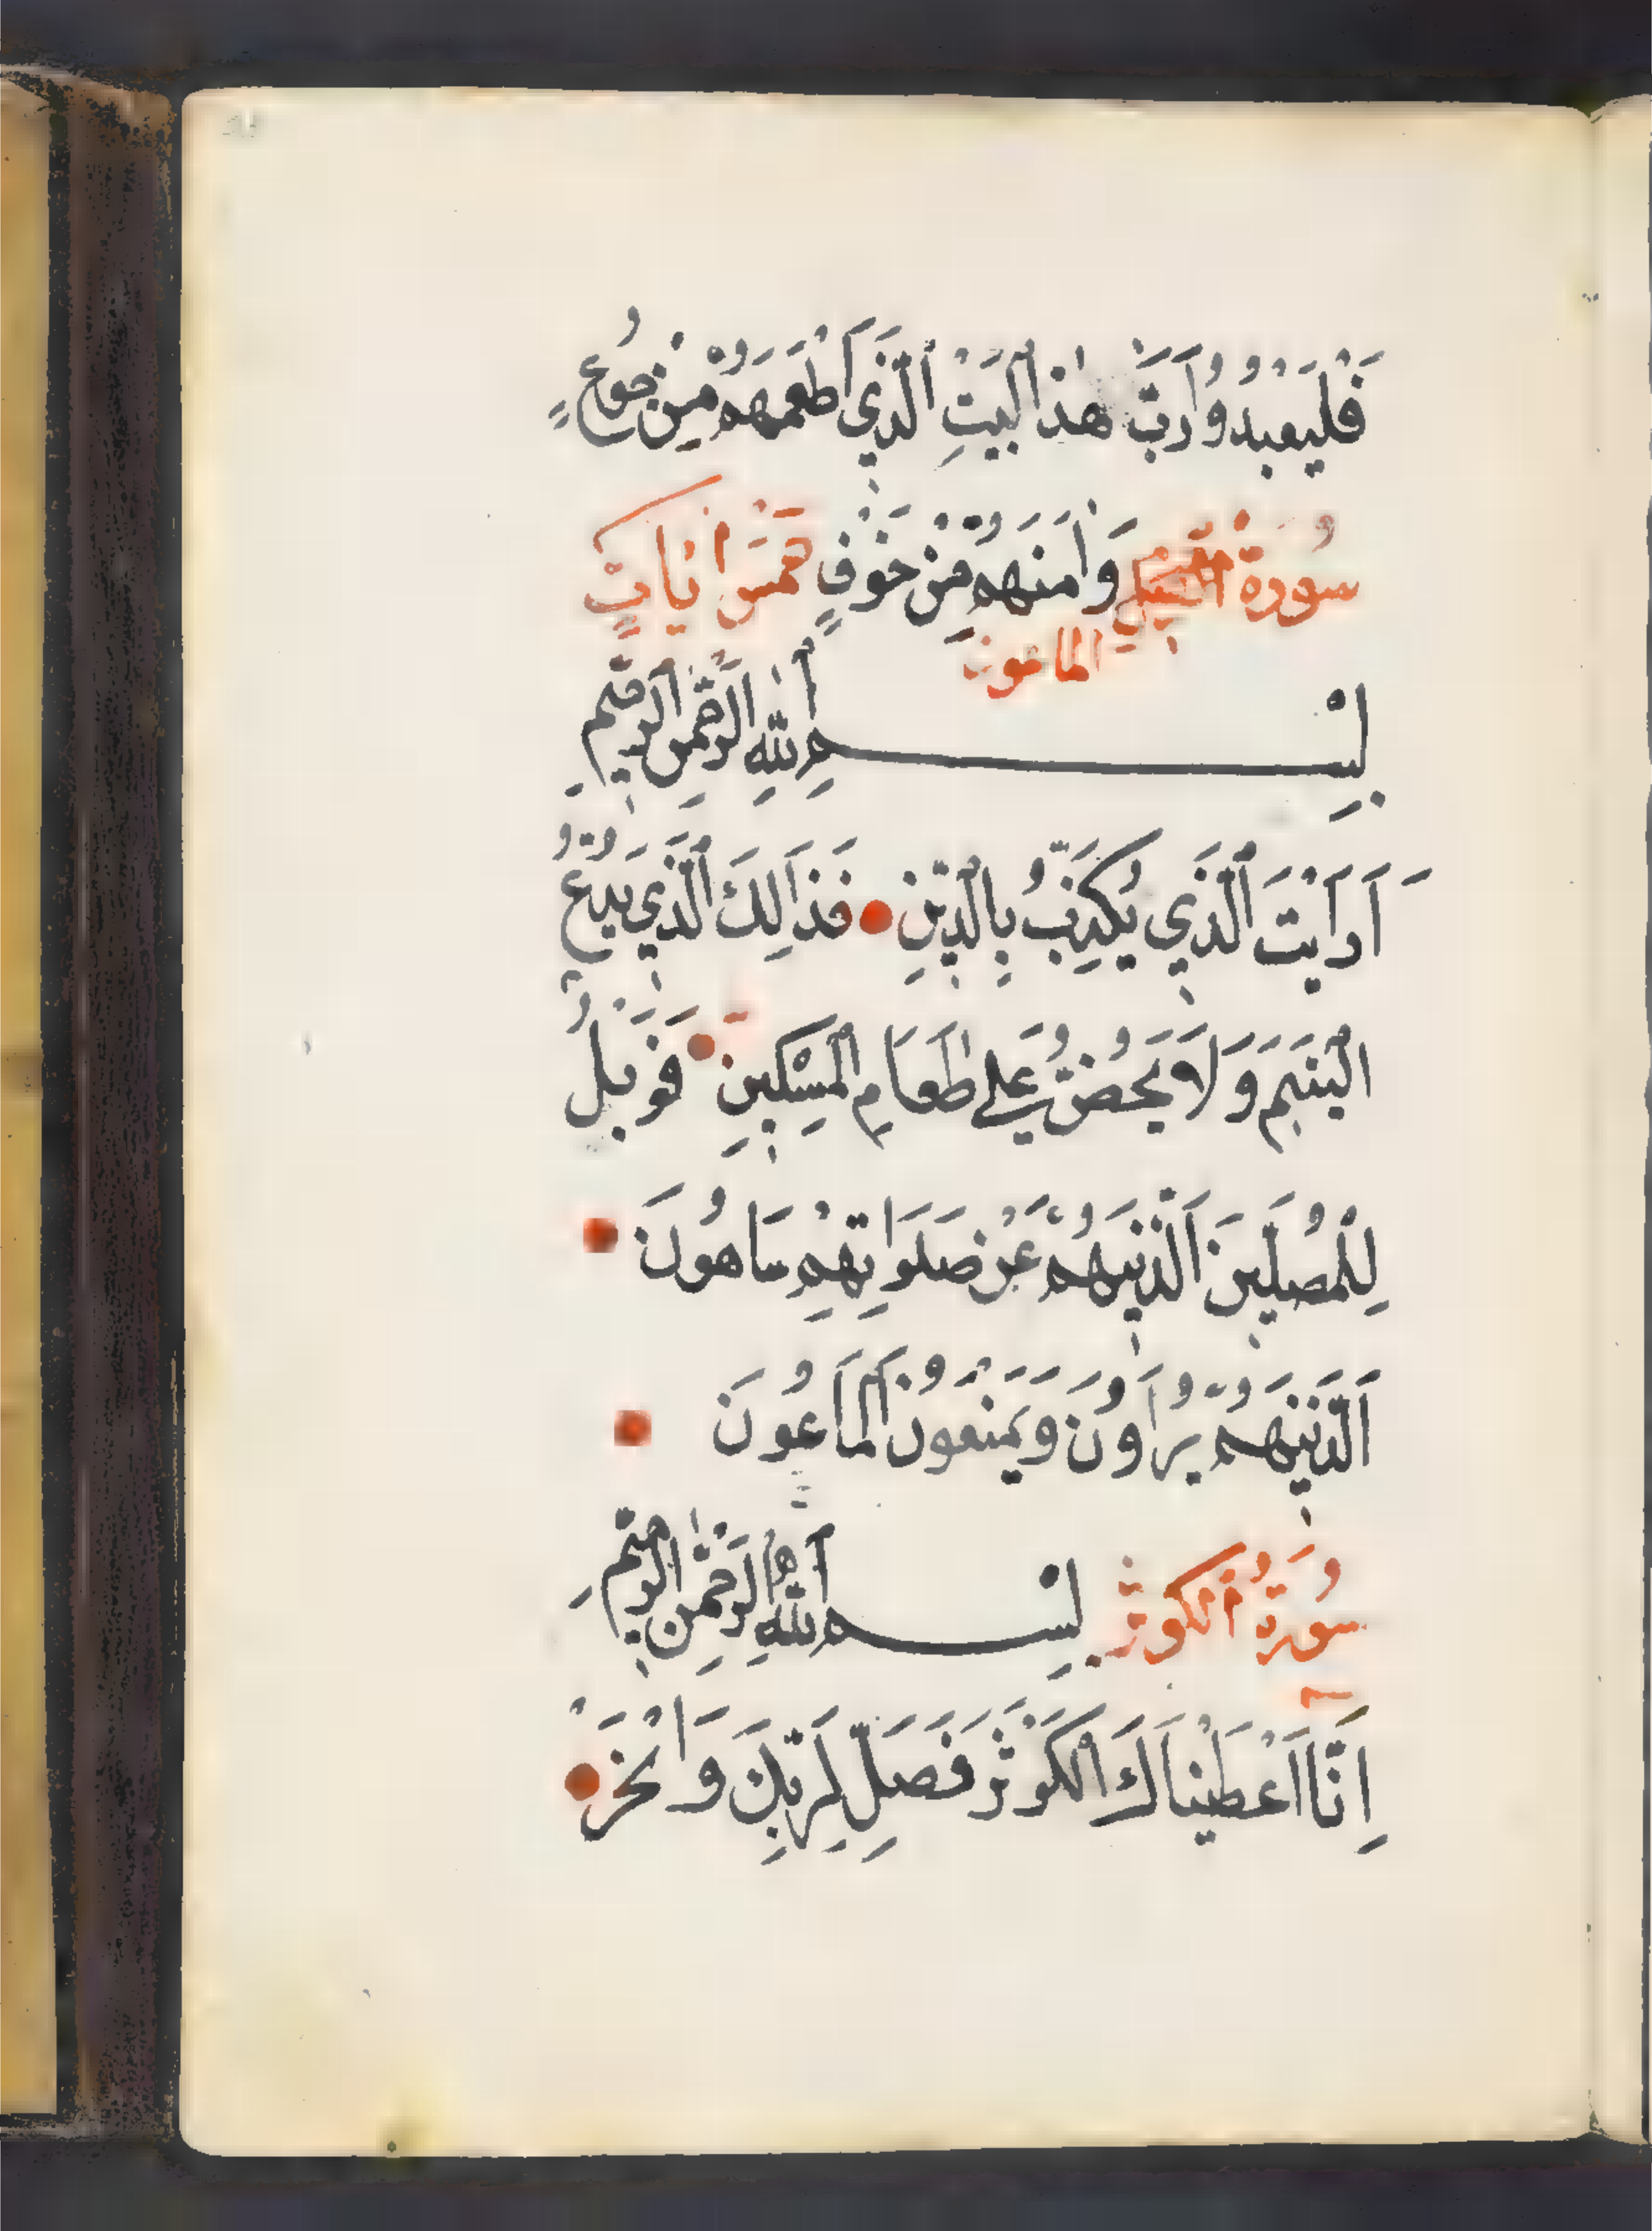 فَلْيَعْبُدُوا رَبَّ هٰذَا الْبَيْتِ الَّذِي أَطْعَمَهُمْ مِنْ جُوعٍ
سُورَةُ وَاٰمَنَهُمْ مِنْ خَوْفٍ خَمْسَ اٰيَاتٍ
الماعون
بِسْمِ اللّٰهِ الرَّحْمٰنِ الرَّحِيمِ
أَرَأَيْتَ الَّذِي يُكَذِّبُ بِالدِّينِ فَذَالِكَ الَّذِي يَدُعُّ
الْيَتِيمَ وَلَا يَحُضُّ عَلَى طَعَامِ الْمِسْكِينِ فَوَيْلٌ
لِلْمُصَلِّينَ الَّذِينَ هُمْ عَنْ صَلَوَاتِهِمْ سَاهُونَ
الَّذِينَ هُمْ يُرَاؤُنَ وَيَمْنَعُونَ الْمَاعُونَ
سُورَةُ الْكَوْثَرِ بِسْمِ اللّٰهِ الرَّحْمٰنِ الرَّحِيمِ
إِنَّا أَعْطَيْنَاكَ الْكَوْثَرَ فَصَلِّ لِرَبِّكَ وَانْحَرْ